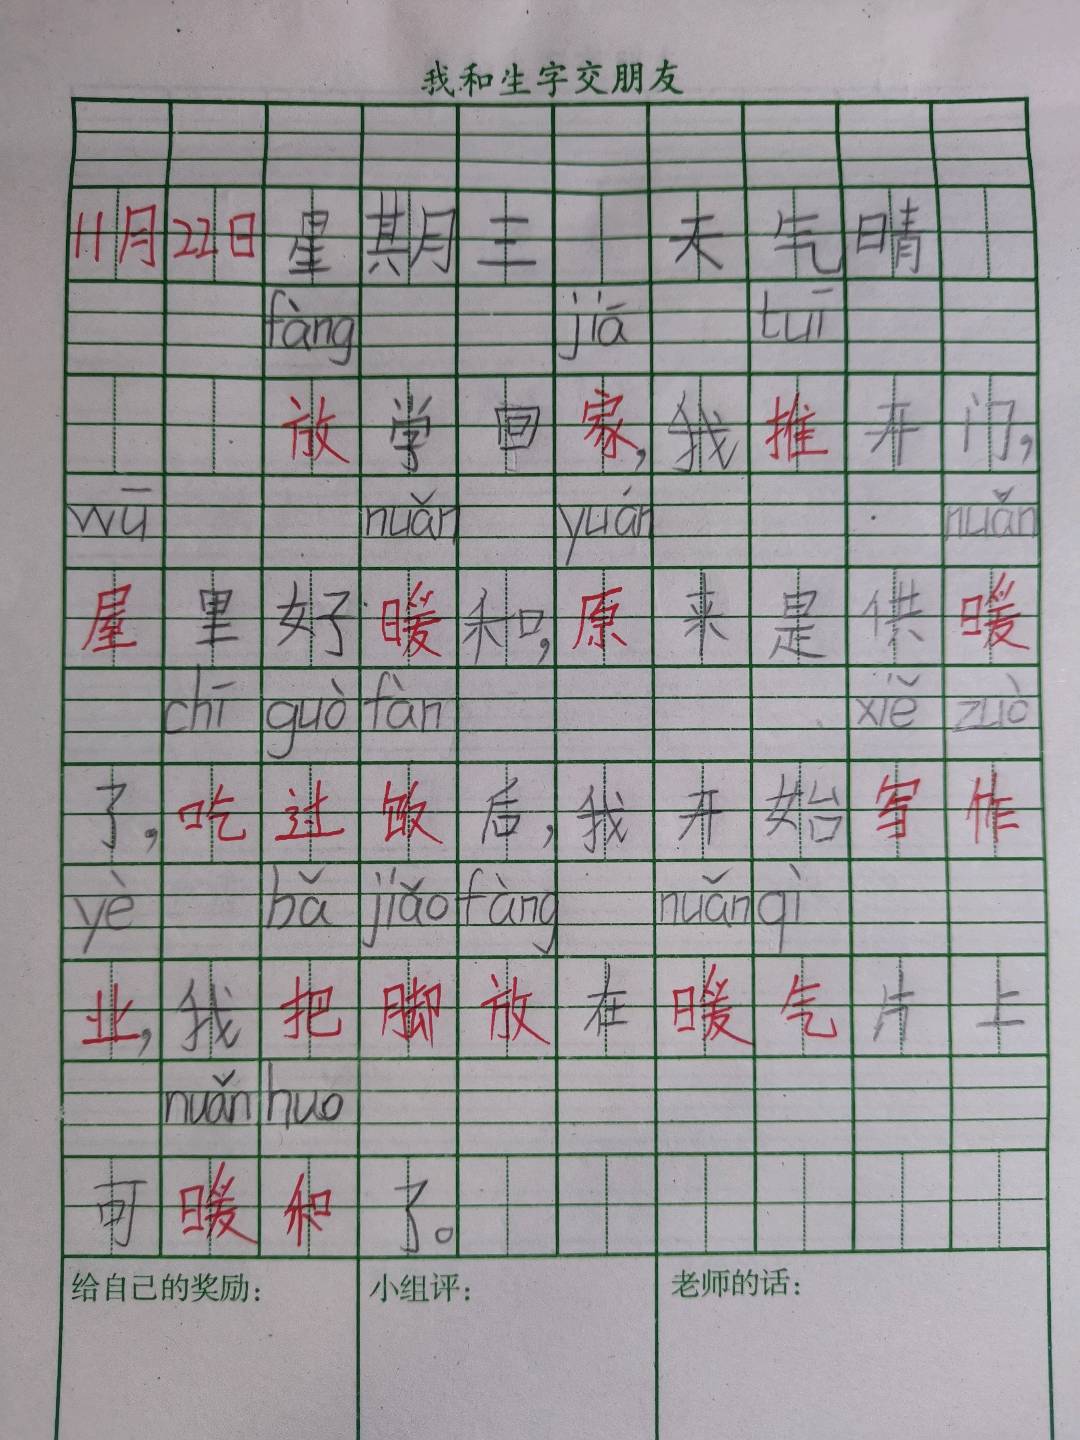 我和生字交朋友
11月22日星期三 天气晴
fàng jiā tuī
放学回家,我推开门,
wū nuǎn yuán nuǎn
屋里好暖和,原来是供暖
chī guò fàn xiě zuò
了,吃过饭后,我开始写作
yè bǎ jiǎo fàng nuǎn qì
业,我把脚放在暖气片上
nuǎn huo
可暖和了。
给自己的奖励: 小组评: 老师的话: